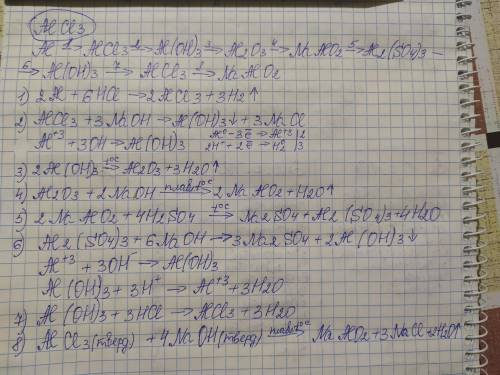 AlCl3
Al 1→ AlCl3 2→ Al(OH)3 3→ Al2O3 4→ NaAlO2 5→ Al2(SO4)3 —
6→ Al(OH)3 7→ AlCl3 8→ NaAlO2
1) 2Al + 6HCl → 2AlCl3 + 3H2↑
2) AlCl3 + 3NaOH → Al(OH)3↓ + 3NaCl
Al+3 + 3OH → Al(OH)3 Al0 − 3ē → Al+3 | 2
2H+ + 2ē → H02 | 3
3) 2Al(OH)3 t°C→ Al2O3 + 3H2O↑
4) Al2O3 + 2NaOH плавл t°C→ 2NaAlO2 + H2O↑
5) 2NaAlO2 + 4H2SO4 t°C→ Na2SO4 + Al2(SO4)3 + 4H2O
6) Al2(SO4)3 + 6NaOH → 3Na2SO4 + 2Al(OH)3↓
Al+3 + 3OH− → Al(OH)3
Al(OH)3 + 3H+ → Al+3 + 3H2O
7) Al(OH)3 + 3HCl → AlCl3 + 3H2O
8) AlCl3(тверд) + 4NaOH(тверд) плавл t°C→ NaAlO2 + 3NaCl + 2H2O↑